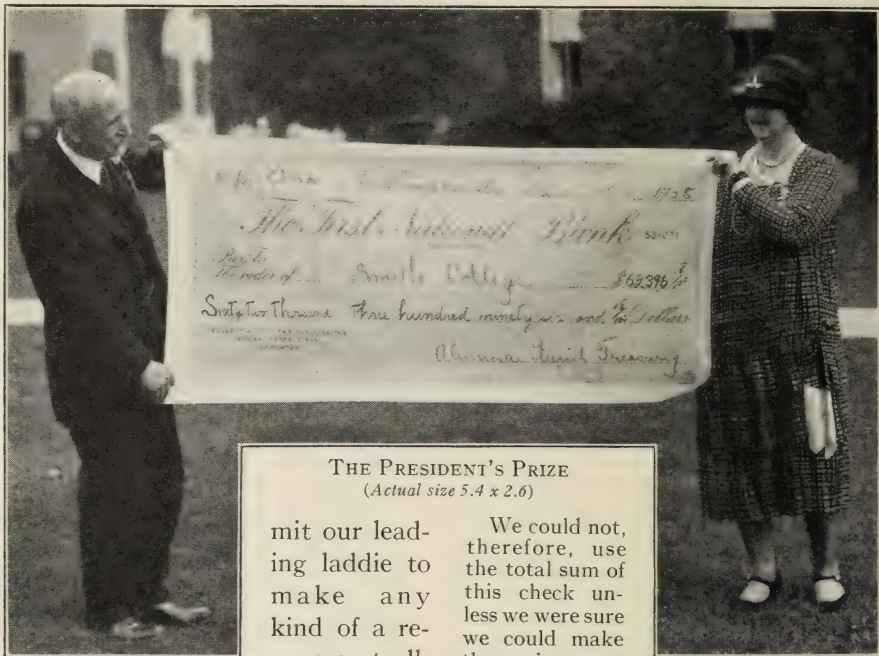 One
1928
The First National Bank
Pay to
The order of College $62396
Sixty Two Thousand three hundred ninety six and Dollars
Alumnae Fund Treasury
THE PRESIDENT'S PRIZE
(Actual size 5.4 x 2.6)
mit our lead-
ing laddie to
make any
kind of a re-
We could not,
therefore, use
the total sum of
this check un-
less we were sure
we could make